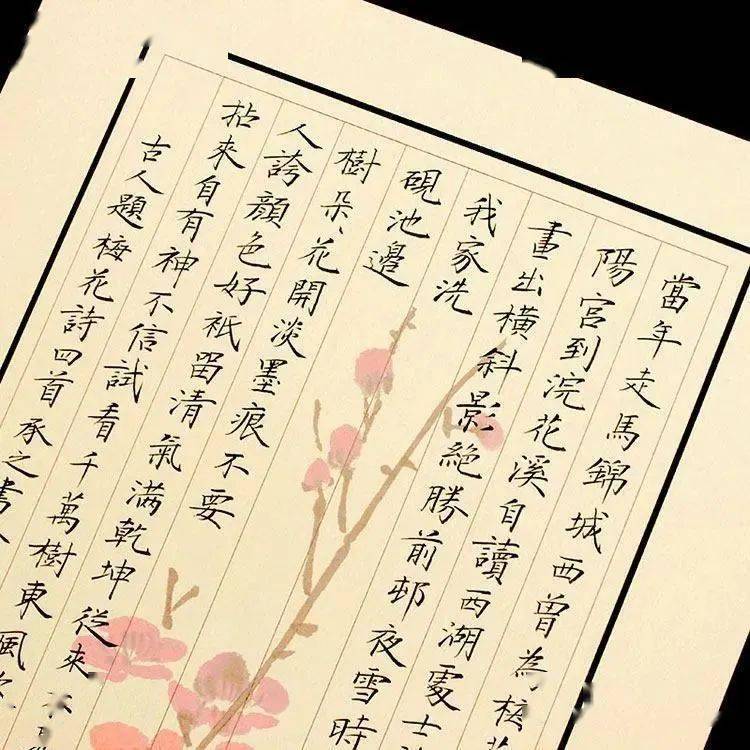 當年走馬錦城西曾為
陽宮到浣花溪自讀西湖處士
畫出橫斜影絕勝前邨夜雪時
我家洗
硯池邊
樹朵、花開淡墨痕不要
人誇顏色好祇留清氣滿乾坤從來不
拈來自有神不信試看千萬樹東風
古人題梅花詩四首承之書